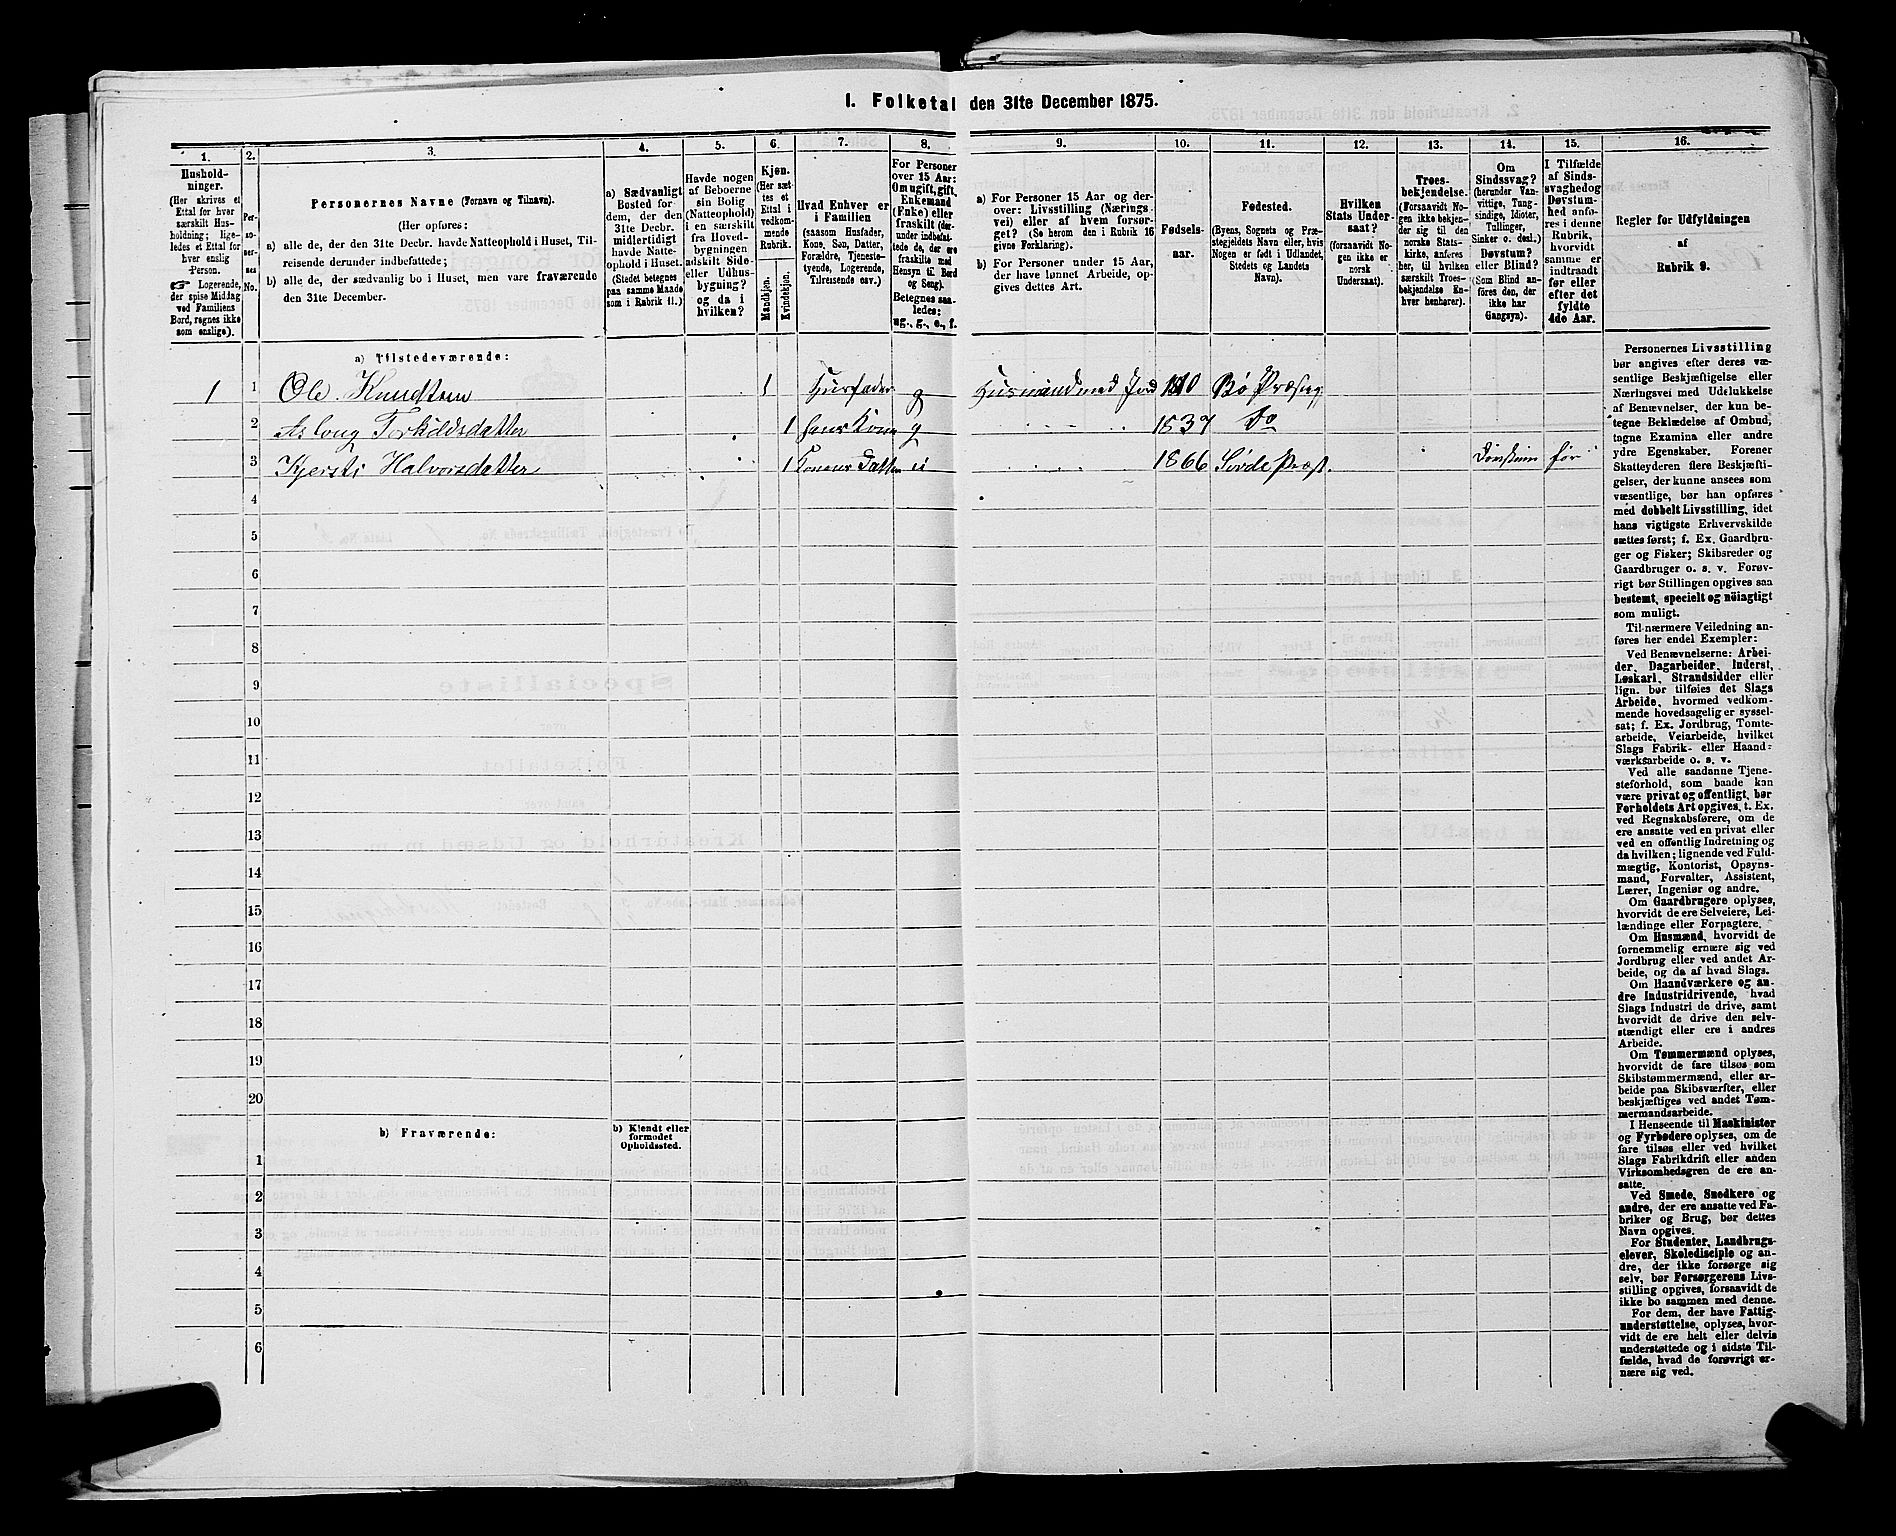 I. Folketal den 31te December 1875.
1.
Hushold-
ninger.
(Her skrives et
Ettal for hver
særskilt Hus-
holdning; lige-
ledes et Ettal for
hver enslig
Person.
☞ Logerende,
der spise Middag
ved Familiens
Bord, regnes ikke
som enslige).
2.
Per-
so-
ner-
nes
No.
3.
Personernes Navne (Fornavn og Tilnavn).
(Her opføres:
a) alle de, der den 31te Decbr. havde Natteophold i Huset, Til-
reisende derunder indbefattede;
b) alle de, der sædvanlig bo i Huset, men vare fraværende
den 31te December.
4.
a) Sædvanligt
Bosted for-
dem, der den
31te Decbr.
midlertidigt
havde Natte-
ophold i Huset.
(Stedet betegnes
paa samme Maade
som i Rubrik 11.)
5.
Havde nogen
af Beboerne
sin Bolig
(Natteophold)
i en særskilt
fra Hoved-
bygningen
adskilt Side-
eller Udhus-
bygning?
og da i
hvilken?
6.
Kjøn.
(Her sæt-
tes et
Ettal i
vedkom-
mende
Rubrik.
Mandkjøn.
Kvindekjøn.
7.
Hvad Enhver er
i Familien
(saasom Husfader,
Kone, Søn, Datter,
Forældre, Tjeneste-
tyende, Logerende,
Tilreisende osv.)
8.
For Personer
over 15 Aar:
Om ugift, gift,
Enkemand
(Enke) eller
fraskilt (der-
under indbefat-
tede de, der ere
fraskilte med
Hensyn til Bord
og Seng).
Betegnes saa-
ledes:
ug., g., e., f.
9.
a) For Personer 15 Aar og der-
over: Livsstilling (Nærings-
vei) eller af hvem forsør-
get? (Se herom den i Rubrik 16
givne Forklaring).
b) For Personer under 15 Aar,
der have lønnet Arbeide, op-
gives dettes Art.
10.
Fødsels-
aar.
11.
Fødested.
(Byens, Sognets og Præ-
stegjeldets Navn eller, hvis
Nogen er født i Udlandet,
Stedets og Landets
Navn).
12.
Hvilken
Stats Under-
saat?
(forsaavidt No-
gen ikke er
norsk
Undersaat).
13.
Troes-
bekjendelse.
(Forsaavidt No-
gen ikke bekjen-
der sig til den
norske Stats-
kirke, anføres
her, til hvilken
særskilt Troes-
bekjendelse En-
hver henhører).
14.
Om
Sindssvag?
(herunder Van-
vittige, Tung-
sindige, Idioter,
Tullinger,
Sinker o. desl.)
Døvstum?
eller Blind?
(Som Blind an-
føres den, der
ikke har
Gangsyn).
15.
I Tilfælde
af Sinds-
svaghed og
Døvstum-
hed anfø-
res i denne
Rubrik,
hvorvidt
samme er
indtraadt
før eller
efter det
fyldte
4de Aar.
16.
Regler for Udfyldningen
af
Rubrik 9.
a) Tilstedeværende:
1 1 Ole Knudtsen 1 Husfader g Husmand med Jord Bø Præsteg
2 Asloug Torkildsdatter 1 hans Kone g 1837 Do
3 Kjersti Halvorsdatter 1 Konens Datter 1866 Søvde Præst. Døvstum før
4
5
6
7
8
9
10
11
12
13
14
15
16
17
18
19
20
b) Fraværende:
b) Kjendt eller
formodet
Opholdssted.
1
2
3
4
5
6
Personernes Livsstilling
bør angives efter deres væ-
sentlige Beskjæftigelse eller
Næringsvei med Udelukkelse
af Benævnelser, der kun be-
tegne Beklædelse af Ombud,
tagne Examina eller andre
ydre Egenskaber. Forener
Skatteyderen flere Beskjæfti-
gelser, der kunne ansees som
væsentlige, bør han opføres
med dobbelt Livsstilling, idet
hans vigtigste Erhvervskilde
sættes først; f. Ex. Gaardbru-
ger og Fisker; Skibsreder og
Gaardbruger o. s. v. Forøv-
rigt bør Stillingen opgives saa
bestemt, specielt og nöiagtigt
som muligt.
Til nærmere Veiledning an-
føres her endel Exempler:
Ved Benævnelserne: Arbei-
der, Dagarbeider, Inderst,
Løskarl, Strandsidder eller
lign. bør tilføies det Slags
Arbeide, hvormed vedkom-
mende hovedsagelig er syssel-
sat; f. Ex. Jordbrug, Tomte-
arbeide, Veiarbeide, hvilket
Slags Fabrik- eller Haand-
værksarbeide o. s. v.
Ved alle saadanne Tjene-
steforhold, som baade kan
være privat og offentligt, bør
Forholdets Art opgives, t. Ex.
ved Regnskabsførere, om de
ere ansatte ved en privat eller
ved en offentlig Indretning og
da hvilken; lignende ved Fuld-
mægtig, Kontorist, Opsyns-
mand, Forvalter, Assistent,
Lærer, Ingeniør og andre.
Om Gaardbrugere oplyses,
hvorvidt de ere Selveiere, Lei-
lændinge eller Forpagtere.
Om Husmænd, hvorvidt de
fornemmelig ernære sig ved
Jordbrug eller ved andet Ar-
beide, og da af hvad Slags.
Om Haandværkere og an-
dre Industridrivende, hvad
Slags Industri de drive, samt
hvorvidt de drive den selv-
stændigt eller ere i andres
Arbeide.
Om Tømmermænd oplyses,
hvorvidt de fare tilsøs som
Skibstømmermænd, eller ar-
beide paa Skibsværfter, eller
beskjæftiges ved andet Tøm-
mermandsarbeide.
I Henseende til Maskinister
og Fyrbødere oplyses, om de
fare tilsøs eller ved hvilket
Slags Fabrikdrift eller anden
Virksomhedsgren de ere an-
satte.
Ved Smede, Snedkere og
andre, der ere ansatte ved Fa-
briker og Brug, bør dettes
Navn opgives.
For Studenter, Landbrugs-
elever, Skoledisciple og an-
dre, der ikke forsørge sig
selv, bør Forsørgerens Livs-
stilling opgives, forsaavidt de
ikke bo sammen med denne.
For dem, der have Fattig-
understøttelse, oplyses, hvor-
vidt de ere helt eller delvis
understøttede og i sidste Til-
fælde, hvad de forøvrigt er-
nære sig ved.